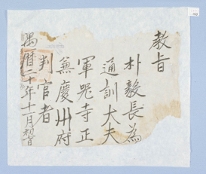 教旨
朴毅長爲
通訓大夫
軍器寺正
兼慶州府
判官者
萬曆二十年十一月初